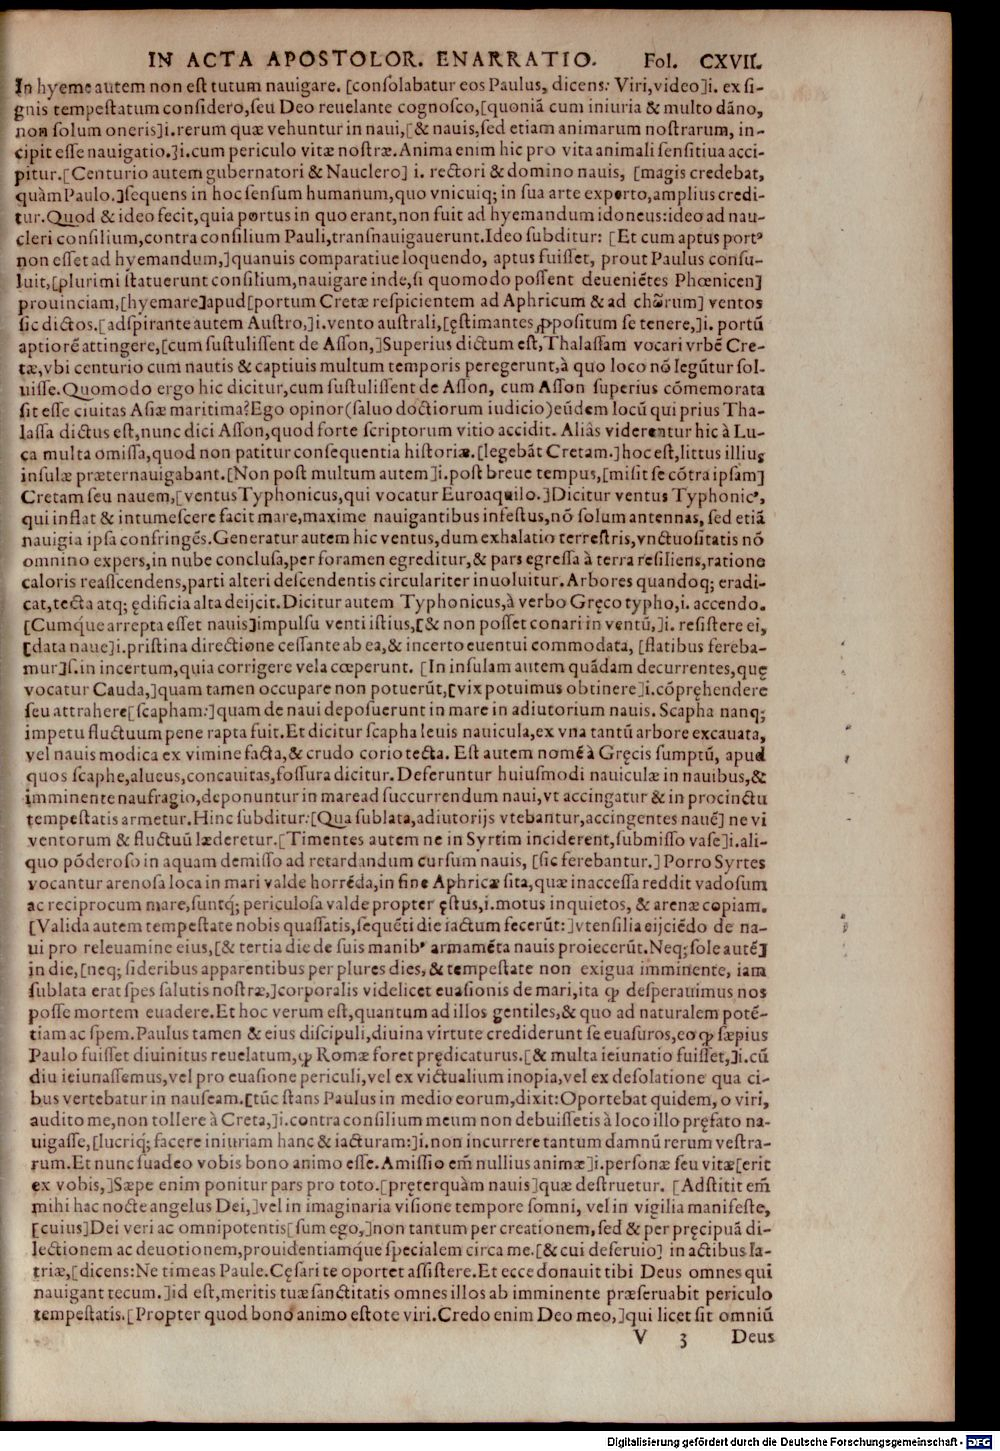 IN ACTA APOSTOLOR. ENARRATIO. Fol. CXVII.
In hyeme autem non est tutum nauigare. [consolabatur eos Paulus, dicens: Viri, video]i. ex si-
gnis tempestatum considero, seu Deo reuelante cognosco, [quoniā cum iniuria & multo dāno,
non solum oneris]i. rerum quæ vehuntur in naui, [& nauis, sed etiam animarum nostrarum, in-
cipit esse nauigatio.]i. cum periculo vitæ nostræ. Anima enim hic pro vita animali sensitiua acci-
pitur. [Centurio autem gubernatori & Nauclero] i. rectori & domino nauis, [magis credebat,
quàm Paulo.]sequens in hoc sensum humanum, quo vnicuiq; in sua arte experto, amplius credi-
tur. Quod & ideo fecit, quia portus in quo erant, non fuit ad hyemandum idoneus: ideo ad nau-
cleri consilium, contra consilium Pauli, transnauigauerunt. Ideo subditur: [Et cum aptus portꝰ
non esset ad hyemandum,]quanuis comparatiue loquendo, aptus fuisset, prout Paulus consu-
luit, [plurimi statuerunt consilium, nauigare inde, si quomodo possent deueniētes Phœnicen]
prouinciam, [hyemare]apud[portum Cretæ respicientem ad Aphricum & ad chorum] ventos
sic dictos. [adspirante autem Austro,]i. vento australi, [ęstimantes ꝓpositum se tenere,]i. portū
aptiorē attingere, [cum sustulissent de Asson,]Superius dictum est, Thalassam vocari vrbē Cre-
tæ, vbi centurio cum nautis & captiuis multum temporis peregerunt, à quo loco nō legūtur sol-
uisse. Quomodo ergo hic dicitur, cum sustulissent de Asson, cum Asson superius cōmemorata
sit esse ciuitas Asiæ maritima? Ego opinor (saluo doctiorum iudicio) eūdem locū qui prius Tha-
lassa dictus est, nunc dici Asson, quod forte scriptorum vitio accidit. Aliâs viderentur hic à Lu-
ca multa omissa, quod non patitur consequentia historiæ. [legebāt Cretam.]hoc est, littus illius
insulæ præternauigabant. [Non post multum autem]i. post breue tempus, [misit se cōtra ipsam]
Cretam seu nauem, [ventus Typhonicus, qui vocatur Euroaquilo.]Dicitur ventus Typhonicꝰ,
qui inflat & intumescere facit mare, maxime nauigantibus infestus, nō solum antennas, sed etiā
nauigia ipsa confringēs. Generatur autem hic ventus, dum exhalatio terrestris, vnctuositatis nō
omnino expers, in nube conclusa, per foramen egreditur, & pars egressa à terra resiliens, ratione
caloris reascendens, parti alteri descendentis circulariter inuoluitur. Arbores quandoq; eradi-
cat, tecta atq; ędificia alta deijcit. Dicitur autem Typhonicus, à verbo Gręco typho, i. accendo.
[Cumque arrepta esset nauis]impulsu venti istius, [& non posset conari in ventū,]i. resistere ei,
[data naue]i. pristina directione cessante ab ea, & incerto euentui commodata, [flatibus fereba-
mur]s. in incertum, quia corrigere vela cœperunt. [In insulam autem quādam decurrentes, quę
vocatur Cauda,]quam tamen occupare non potuerūt, [vix potuimus obtinere]i. cōpręhendere
seu attrahere[scapham:]quam de naui deposuerunt in mare in adiutorium nauis. Scapha nanq;
impetu fluctuum pene rapta fuit. Et dicitur scapha leuis nauicula, ex vna tantū arbore excauata,
vel nauis modica ex vimine facta, & crudo corio tecta. Est autem nomē à Gręcis sumptū, apud
quos scaphe, alueus, concauitas, fossura dicitur. Deferuntur huiusmodi nauiculæ in nauibus, &
imminente naufragio, deponuntur in mare ad succurrendum naui, vt accingatur & in procinctu
tempestatis armetur. Hinc subditur: [Qua sublata, adiutorijs vtebantur, accingentes nauē] ne vi
ventorum & fluctuū læderetur. [Timentes autem ne in Syrtim inciderent, submisso vase]i. ali-
quo pōderoso in aquam demisso ad retardandum cursum nauis, [sic ferebantur.] Porro Syrtes
vocantur arenosa loca in mari valde horrēda, in fine Aphricæ sita, quæ inaccessa reddit vadosum
ac reciprocum mare, suntq; periculosa valde propter ęstus, i. motus inquietos, & arenæ copiam.
[Valida autem tempestate nobis quassatis, sequēti die iactum fecerūt:]vtensilia eijciēdo de na-
ui pro releuamine eius, [& tertia die de suis manibꝰ armamēta nauis proiecerūt. Neq; sole autē]
in die, [neq; sideribus apparentibus per plures dies, & tempestate non exigua imminente, iam
sublata erat spes salutis nostræ,]corporalis videlicet euasionis de mari, ita ꝙ desperauimus nos
posse mortem euadere. Et hoc verum est, quantum ad illos gentiles, & quo ad naturalem potē-
tiam ac spem. Paulus tamen & eius discipuli, diuina virtute crediderunt se euasuros, eo ꝙ sæpius
Paulo fuisset diuinitus reuelatum, ꝙ Romæ foret prędicaturus. [& multa ieiunatio fuisset,]i. cū
diu ieiunassemus, vel pro euasione periculi, vel ex victualium inopia, vel ex desolatione qua ci-
bus vertebatur in nauseam. [tūc stans Paulus in medio eorum, dixit: Oportebat quidem, o viri,
audito me, non tollere à Creta,]i. contra consilium meum non debuissetis à loco illo pręfato na-
uigasse, [lucriq; facere iniuriam hanc & iacturam:]i. non incurrere tantum damnū rerum vestra-
rum. Et nunc suadeo vobis bono animo esse. Amissio em̄ nullius animæ]i. personæ seu vitæ[erit
ex vobis,]Sæpe enim ponitur pars pro toto. [pręterquàm nauis]quæ destruetur. [Adstitit em̄
mihi hac nocte angelus Dei,]vel in imaginaria visione tempore somni, vel in vigilia manifeste,
[cuius]Dei veri ac omnipotentis[sum ego,]non tantum per creationem, sed & per pręcipuā di-
lectionem ac deuotionem, prouidentiamque specialem circa me. [& cui deseruio] in actibus la-
triæ, [dicens: Ne timeas Paule. Cęsari te oportet assistere. Et ecce donauit tibi Deus omnes qui
nauigant tecum.]id est, meritis tuæ sanctitatis omnes illos ab imminente præseruabit periculo
tempestatis. [Propter quod bono animo estote viri. Credo enim Deo meo,]qui licet sit omniū
V 3 Deus
Digitalisierung gefördert durch die Deutsche Forschungsgemeinschaft - DFG